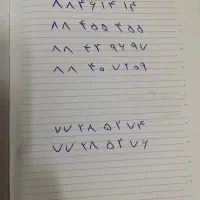 ۸۸ ۴۶ ۱۴ ۱۴
۸۸ ۴۵۵ ۴۵۵
۸۸ ۴۲ ۹۶ ۹۷
۸۸ ۴۰ ۷۲۵۹
۷۷ ۲۸ ۵۲ ۷۴
۷۷ ۲۸ ۵۲ ۷۶